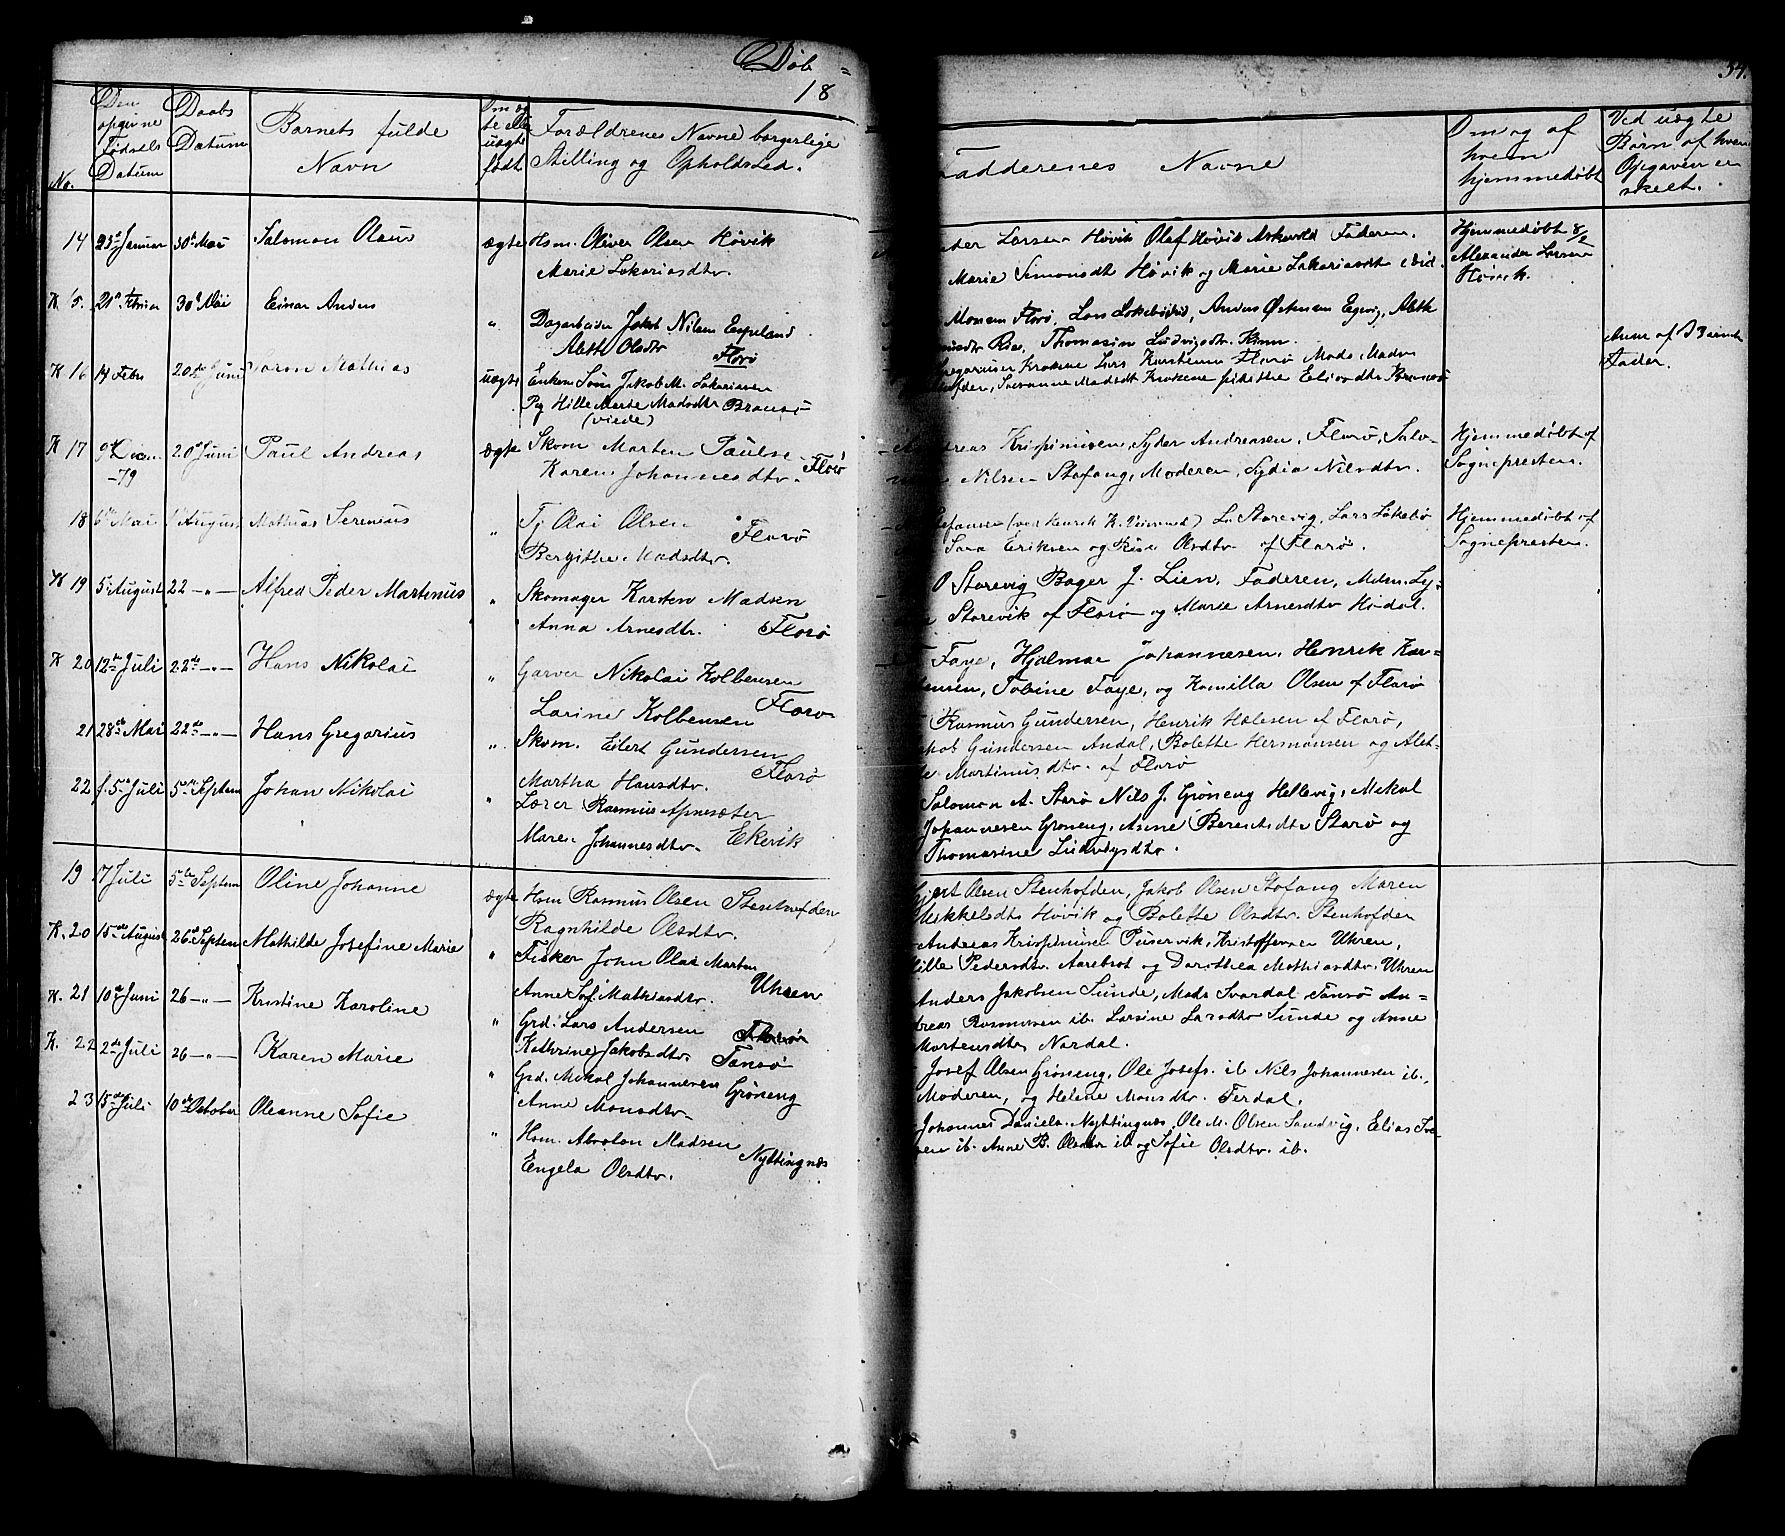 Døb =
18
34.
No.
Den opgivne Fødsels Datum
Daabs Datum
Barnets fulde Navn
Om ægte eller uægte født
Forældrenes Navne borgerlige Stilling og Opholdsted.
Fadderenes Navne
Om og af hvem hjemmedøbt
Ved uægte Børn af hvem Opgaven er skeet.
14 23de Januar 30te Mai Salomon Olaus ægte Hsm. Oliver Olsen Høvik
Marie Zakariasdtr.
Larsen Høvik Olaf Høvik Askevold Faderen.
Marie Simonsdt Høvik og Marie Zakariasdt ibid.
Hjemmedøbt 8/2
Alexander Larsen
Høvik.
K 15. 21de Februar 30te Mai Einar Anders " Dagarbeider Jakob Nilsen Espeland
Alette Olsdtr Florø
Monsen Florø, Lars Løkebø, Anders Østensen Egevig, Alette
Thomasine Ludvigsdtr. Kinn.
K 16 14 Febru 20de Juni Søren Mathias uægte Enkem. Søm. Jakob M. Zakariasen
Pg Hille Marie Madsdtr Bransø
(viede)
Gregoriusen Krokene Lars Karstensen Florø Mads Madsen
Susanne Madsdt Krokene
Anm af Barnets
Fader.
K 17 9de Decem -79 20de Juni Paul Andreas ægte Skom Marten Paulse
Karen Johannesdtr. Florø
Andreas Krispinusen, Syder Andreasen, Florø, Salo-
Nilsen Stafang, Moderen, Lydia Nilsdtr.
Hjemmedøbt af
Sognepresten.
18 6te Mai 1ste August Mathias Serenius " Tj Olai Olsen Florø
Bergithe Madsdtr.
L. Storevig, Lars Løkebø
Sara Eriksen og Olsdtr. af Florø.
Hjemmedøbt af
Sognepresten.
K 19 5te August 22 -"- Alfred Peder Martinus " Skomager Karsten Madsen
Anna Arnesdtr. Florø
O Storevig Bager J. Lien, Faderen, Mdm. Ly-
Storevik af Florø og Marie Arnesdtr Hødal.
K 20 12te Juli 22de -"- Hans Nikolai " Garver Nikolai Kolbensen
Larine Kolbensen Florø
Faye, Hjalmar Johannesen, Henrik Kar-
stensen, Tobine Faye, og Kamilla Olsen af Florø
21 28de Mai 22de -"- Hans Gregorius " Skom. Eilert Gundersen
Martha Hansdtr. Florø
Rasmus Gundersen, Henrik Halesen af Florø,
Jakob Gundersen Andal, Bolette Hermansen og Alet-
te Martinusdtr. af Florø
22 f. 5te Juli 5te Septem Johan Nikolai " Lærer Rasmus Apnesæter
Mare. Johannesdtr. Ekevik
Salomon A. Starø Nils J. Grøneng Hellevig, Mekal
Johannesen Grøneng, Anne Berentsdtr Starø og
Thomasine Ludvigsdtr.
19 7 Juli 5te Septem Oline Johanne ægte Hsm Rasmus Olsen Stenhofden
Ragnhilde Olsdtr.
Gjert Olsen Stenhofden, Jakob Olsen Stafang Maren
Mekkelsdtr Høvik og Bolette Olsdtr. Stenhofden
K. 20 15de August 26de Septem Mathilde Josefine Marie " Fisker John Olai Marten
Anne Sof. Mathiasdtr. Uhren
Andreas Krispinusen Puservik, Kristoffersen Uhren,
Hille Pedersdtr. Aarebrot og Dorothea Mathiasdtr. Uhren
K. 21 10de Juni 26 -"- Kristine Karoline " Grd. Lars Andersen Florø
Kathrine Jakobsdtr. Tansø
Anders Jakobsen Sunde, Mads Svardal Tansø An-
dreas Rasmusen ib. Larsine Larsdtr Sunde og Anne
Martensdtr Nordal.
K. 22 2de Juli 26 -"- Karen Marie " Grd. Mekal Johannesen Grøneng
Anne Monsdtr.
Josef Olsen Grøneng, Ole Josefs. ib Nils Johannesen ib.,
Moderen, og Helene Monsdtr. Ferdal.
23 15de Juli 10de October Oleanne Sofie " Hsm. Absolon Madsen Nyttingnæs
Engela Olsdtr.
Johannes Daniels. Nyttingnæs, Ole M. Olsen Sandvig, Elias Iver-
sen ib. Anne B. Olsdtr ib og Sofie Olsdtr. ib.